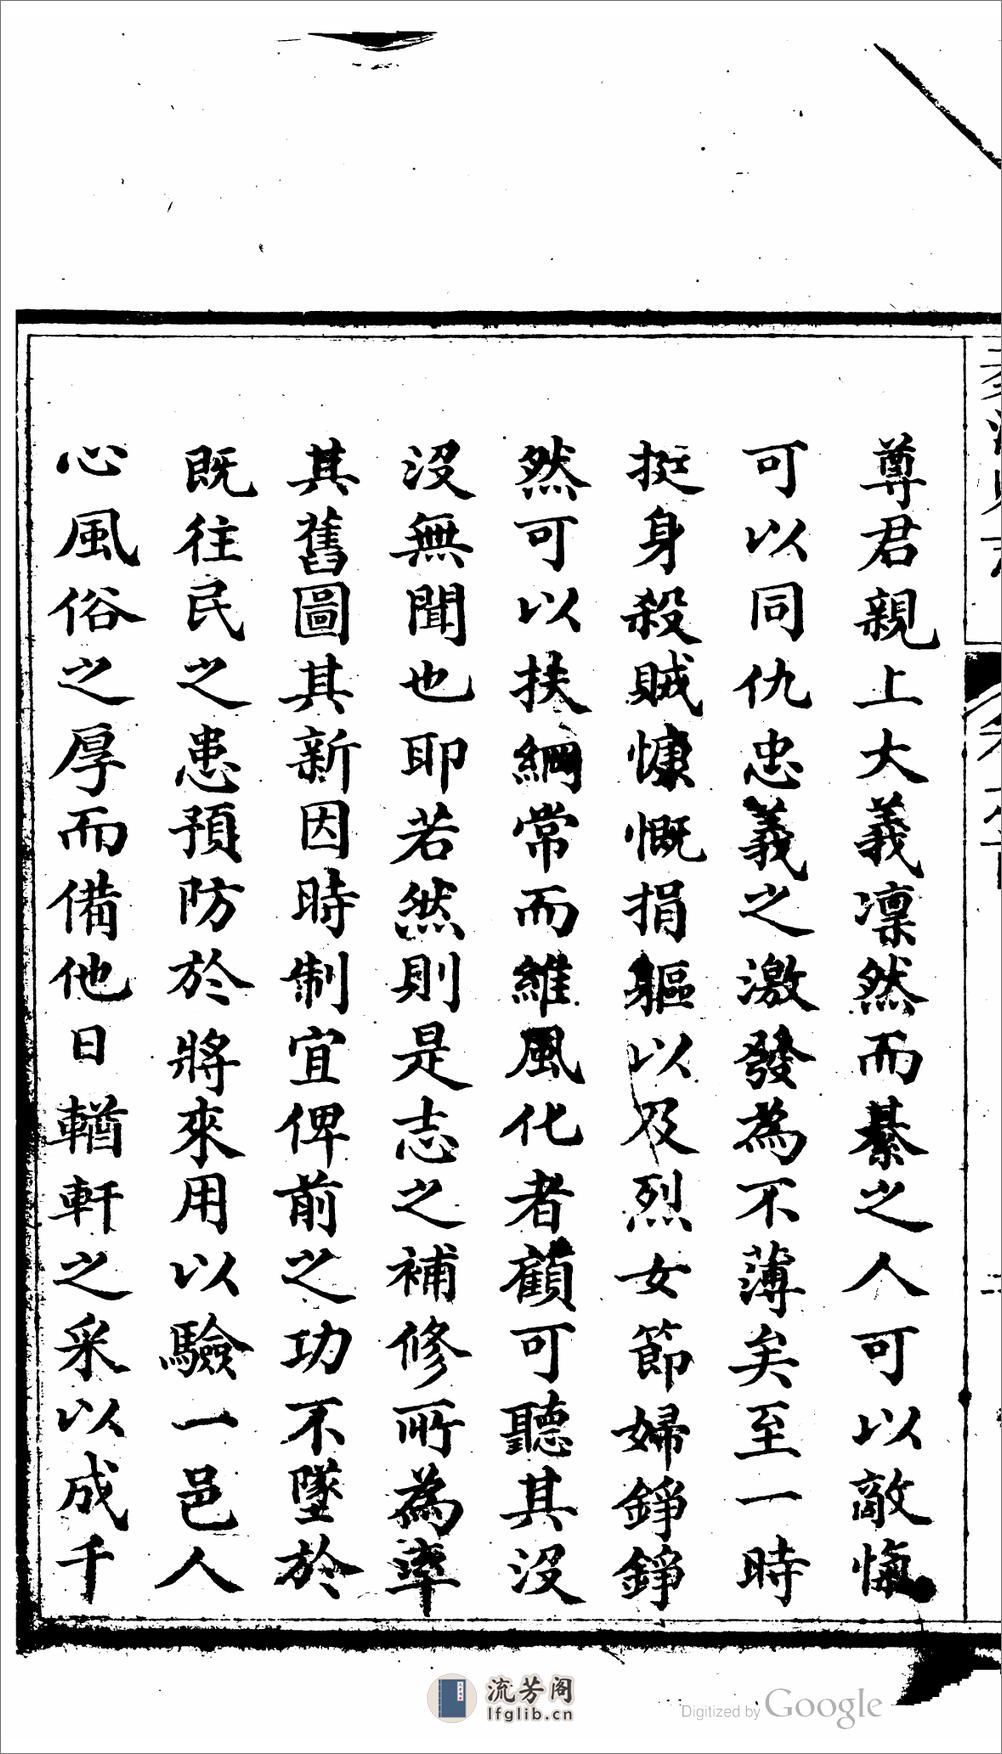 尊君親上大義凜然而綦之人可以敵愾
可以同仇忠義之激發為不薄矣至一時
挺身殺賊慷慨捐軀以及烈女節婦錚錚
然可以扶綱常而維風化者顧可聽其沒
沒無聞也耶若然則是志之補修所為率
其舊圖其新因時制宜俾前之功不墜於
既往民之患預防於將來用以驗一邑人
心風俗之厚而備他日輶軒之采以成千
流芳阁
lfglib.cn
Digitized by Google